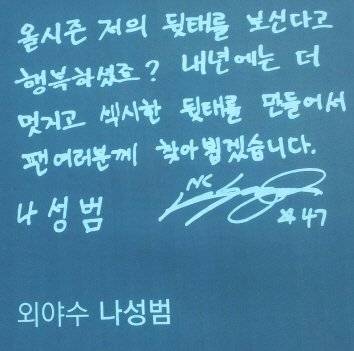 올시즌 저의 뒷태를 보신다고
행복하셨죠? 내년에는 더
멋지고 섹시한 뒷태를 만들어서
팬여러분께 찾아뵙겠습니다.
나성범 NC #47
외야수 나성범